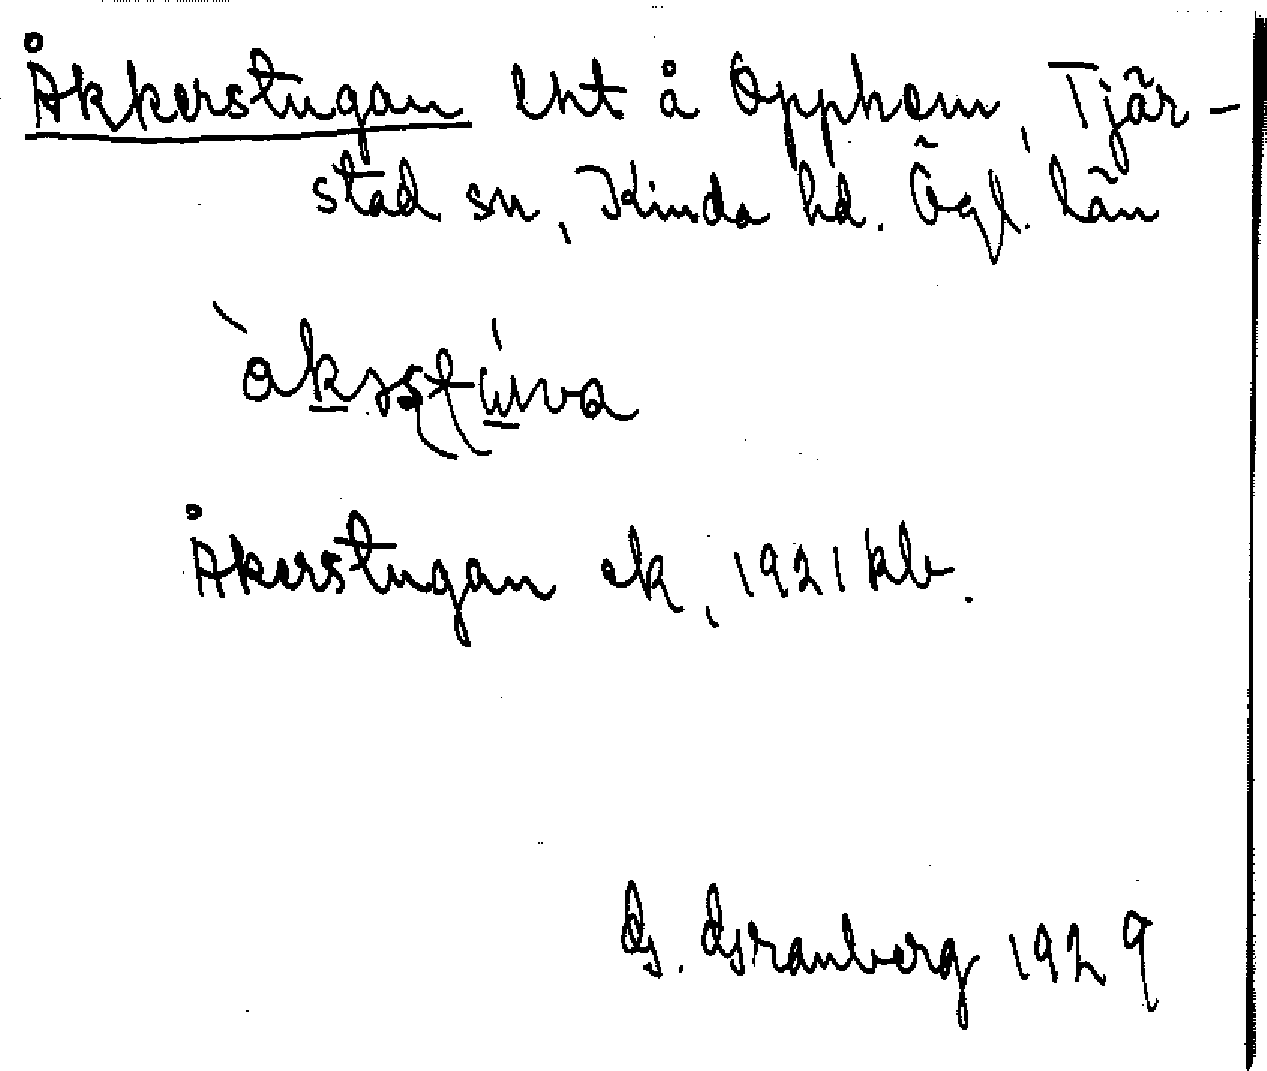 Åkkerstugan lht å Opphem, Tjär-
stad sn, Kinda hd. Ögl. län
Åkerstugan ek, 1921 klb.
G. Granberg 1929